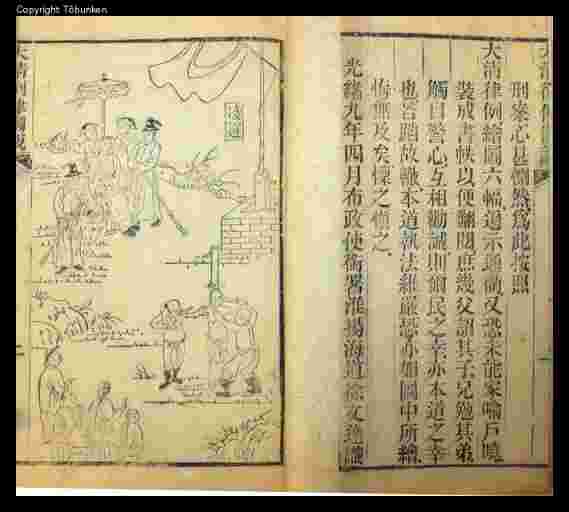 Copyright Tōbunken
刑案心甚惻然爲此按照
大清律例繪圖六幅遍示通衢又恐未能家喻戶曉
裝成書帙以便翻閱庶幾父詔其子兄勉其弟
觸目警心互相勸誡則爾民之幸亦本道之幸
也若蹈故轍本道執法維嚴恐亦如圖中所繪
悔無及矣懍之慎之
光緒九年四月布政使銜署淮揚海道徐文達識
凌遲